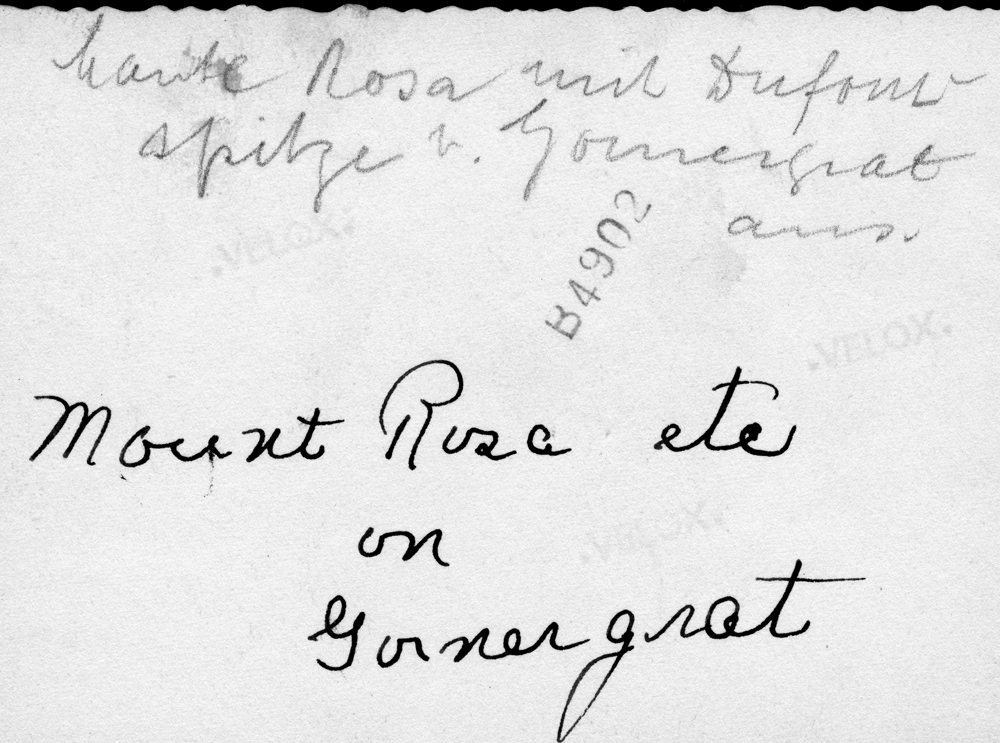 Monte Rosa mit Dufour
spitze v. Gornergrat
aus.
B4902
.VELOX.
.VELOX.
Mount Rosa etc
on
.VELOX.
Gornergrat